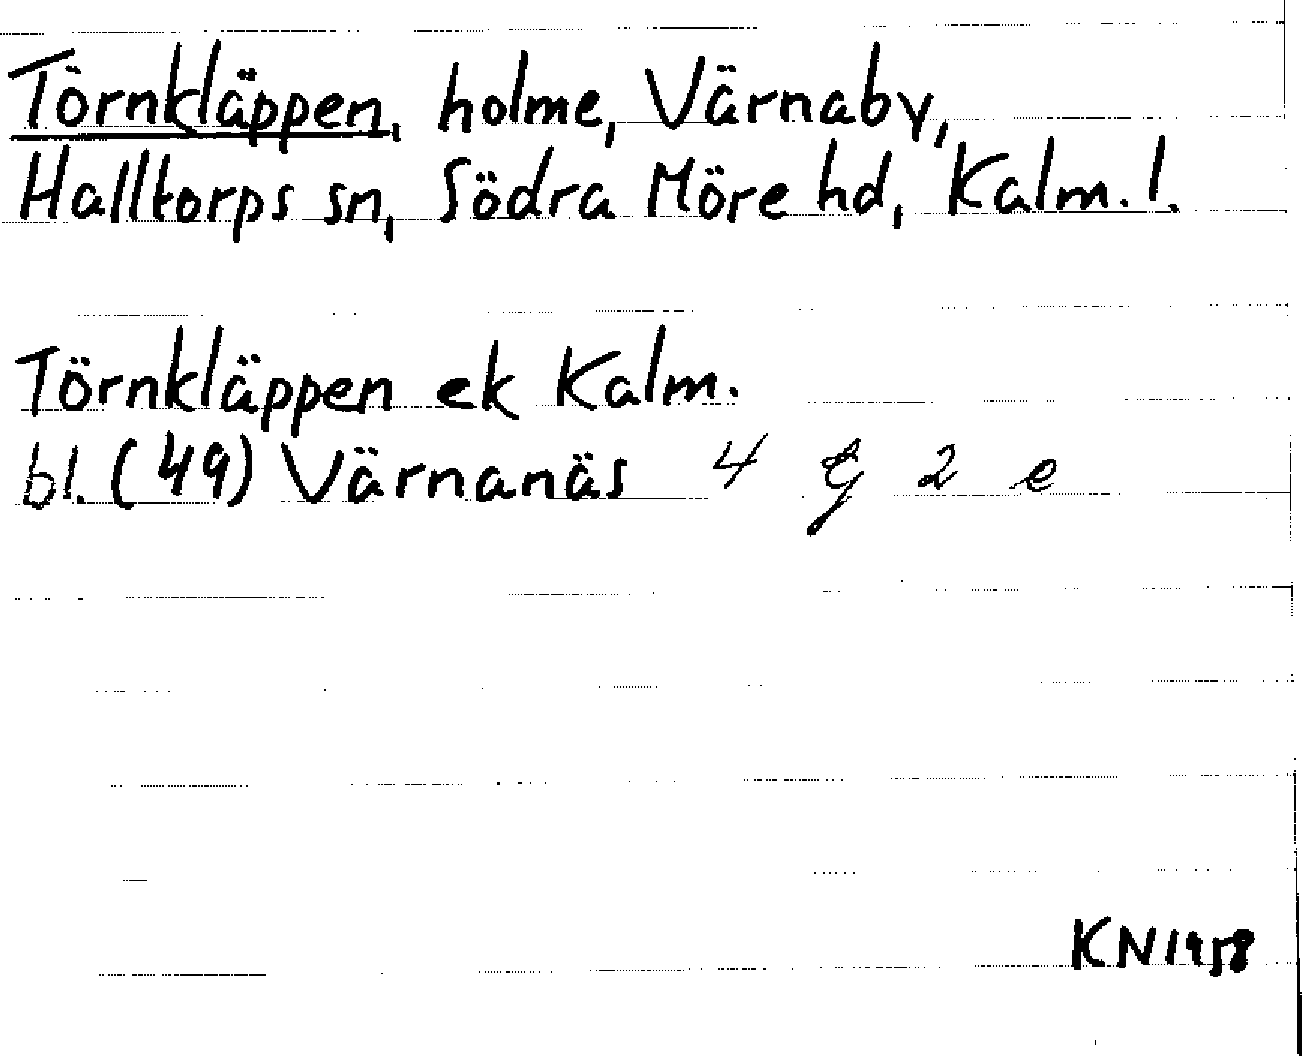 Törnkläppen, holme, Värnaby,
Halltorps sn, Södra Möre hd, Kalm. l.
Törnkläppen ek Kalm.
bl. (49) Värnanäs 4 G 2 e
KN 1958